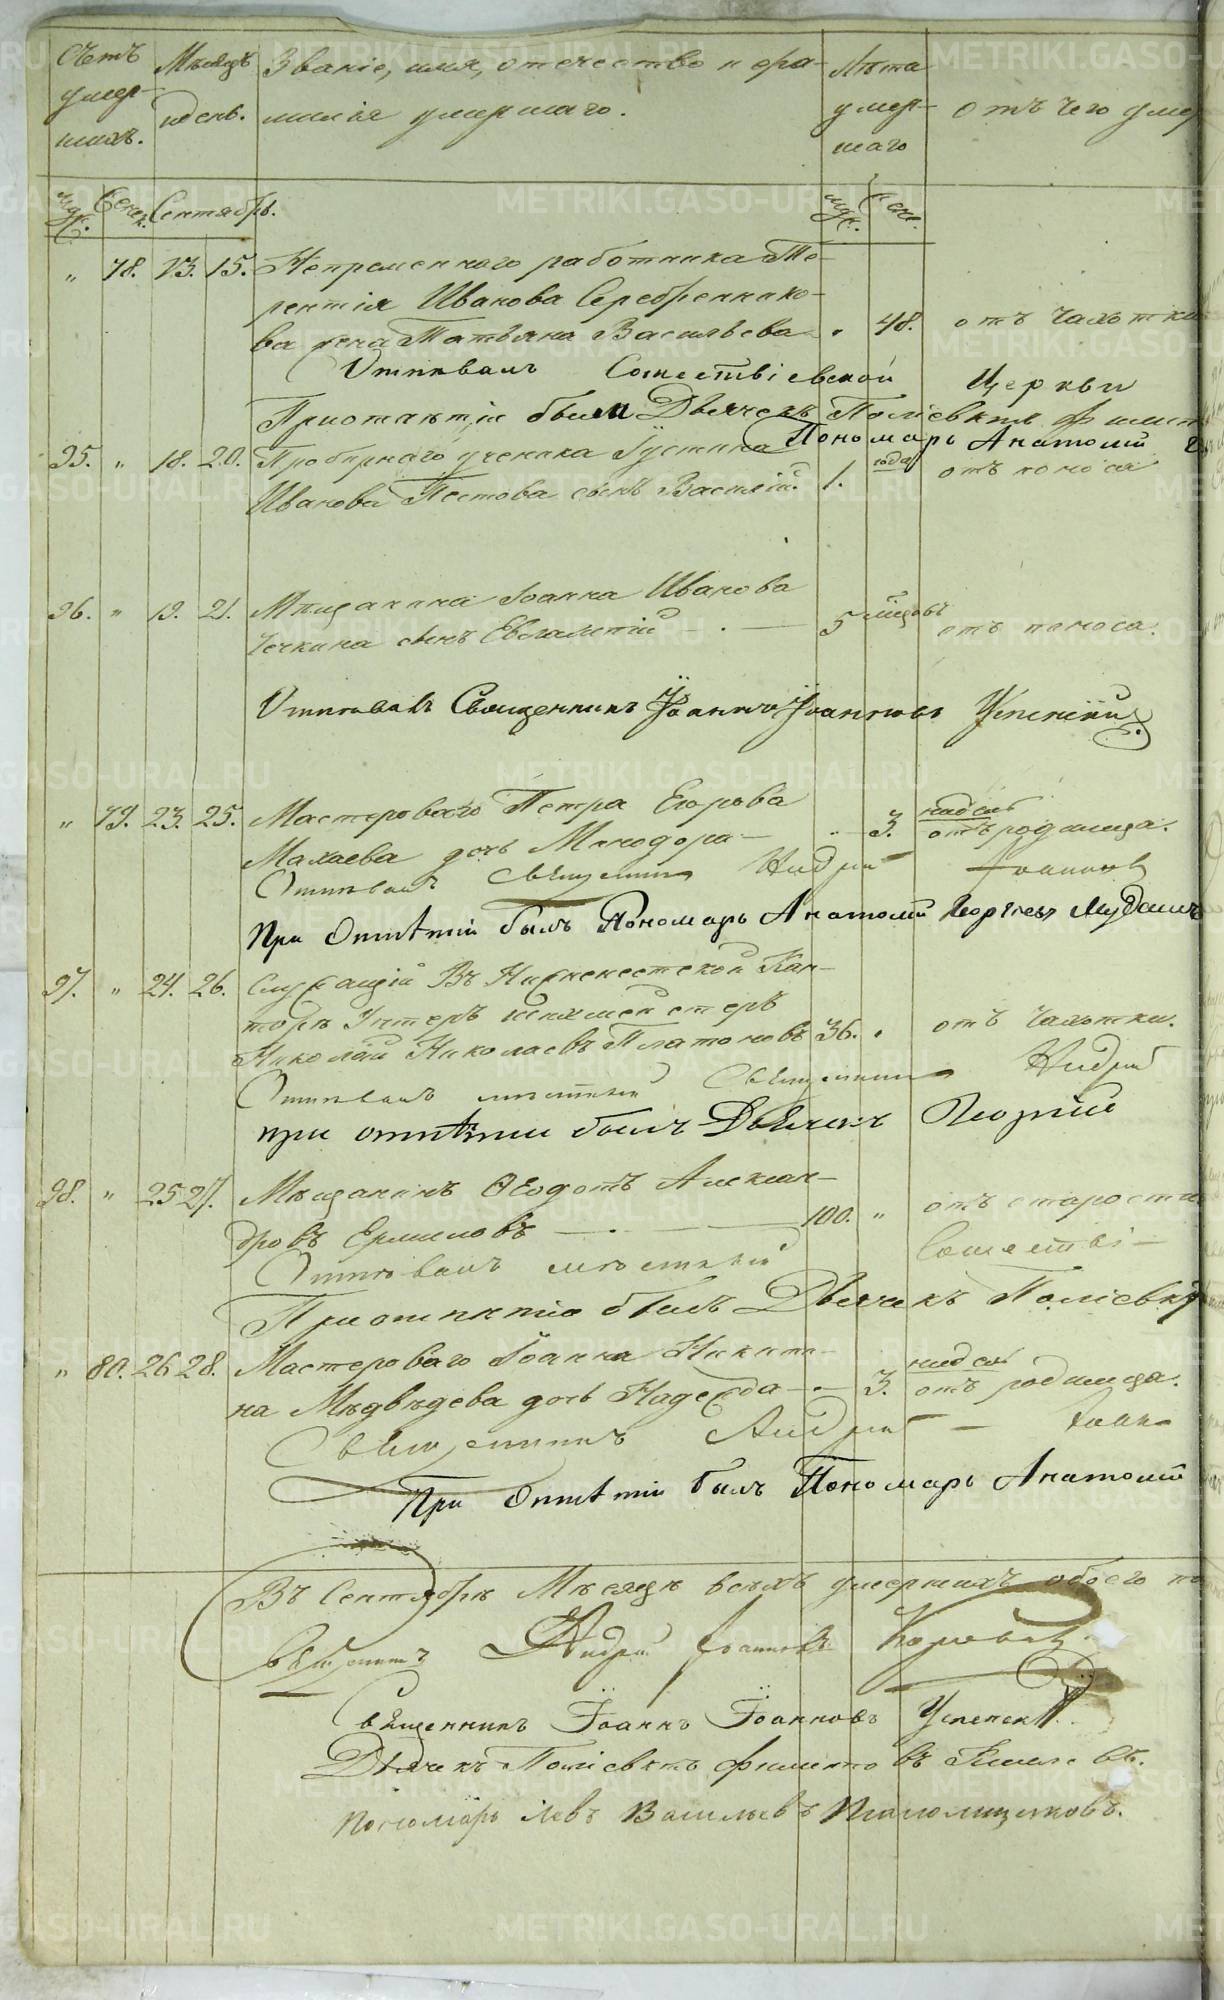 Счетъ умер- шихъ.
Мѣсяцъ и день.
Званіе, имя, отечество и фа-
милія умершаго.
Лѣта умер- шаго
отъ чего умер
муж. Сентябрь. муж.
„ 78. 13. 15. Непременнаго работника Те-
рентія Иванова Серебреннико-
ва жена Татьяна Васильева „ 48. отъ чахотки
Отпѣвалъ Сошествіевской Церкви
При отпѣтіи были Дьячекъ Поліевктъ
Пономарь Анатолій
95. „ 18. 20. Пробирнаго ученика Іустина
Иванова Пестова сынъ Василій. 1. года отъ поноса
96. „ 19. 21. Мещанина Іоанна Иванова
Чечкина сынъ Евлампій 5 отъ поноса.
Отпѣвалъ Священникъ Іоаннъ Іоанновъ Успенскій
„ 79. 23. 25. Мастероваго Петра Егорова
Махаева дочь Минодора „ 3. недель отъ родимца.
Отпѣвалъ Священникъ Андрей Іоанновъ
При Отпѣтіи былъ Пономарь Анатолій Георгіевъ
97. „ 24. 26. Служащій Въ Нижнеисетской Кан-
торѣ Унтеръ шихмейстеръ
Николай Николаевъ Платоновъ 36. „ отъ чахотки.
Отпѣвалъ мѣстный Священникъ Андрей
при отпѣтіи былъ Дьячекъ Георгій
98. „ 25 27. Мѣщанинъ Ѳеодотъ Алексан-
дровъ Ермиловъ 100. „ отъ старости
Отпѣвалъ мѣстный Сошестві-
При отпѣтіи былъ Дьячекъ Поліевктъ
„ 80. 26 28. Мастероваго Іоанна Никити-
на Мѣдвѣдева дочь Надежда 3. недель отъ родимца.
Священникъ Андрей Іоан
При Отпѣтіи былъ Пономарь Анатолій
Въ Сентябрѣ Мѣсяцѣ всѣхъ умершихъ обоего по
Священникъ Андрей Іоанновъ
Священникъ Іоаннъ Іоанновъ Успенскій.
Дьячекъ Поліевктъ
Пономарь Левъ Васильевъ
METRIKI.GASO-URAL.RU